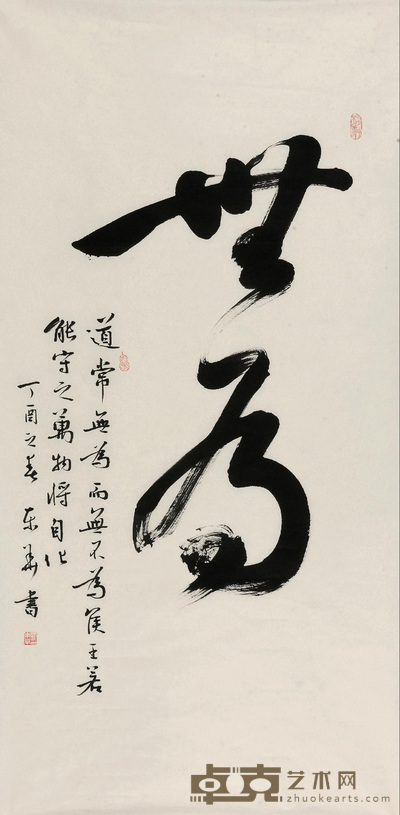 無為
道常無為而無不為侯王若
能守之萬物將自化
丁酉之春东华書
卓克艺术网
zhuokearts.com